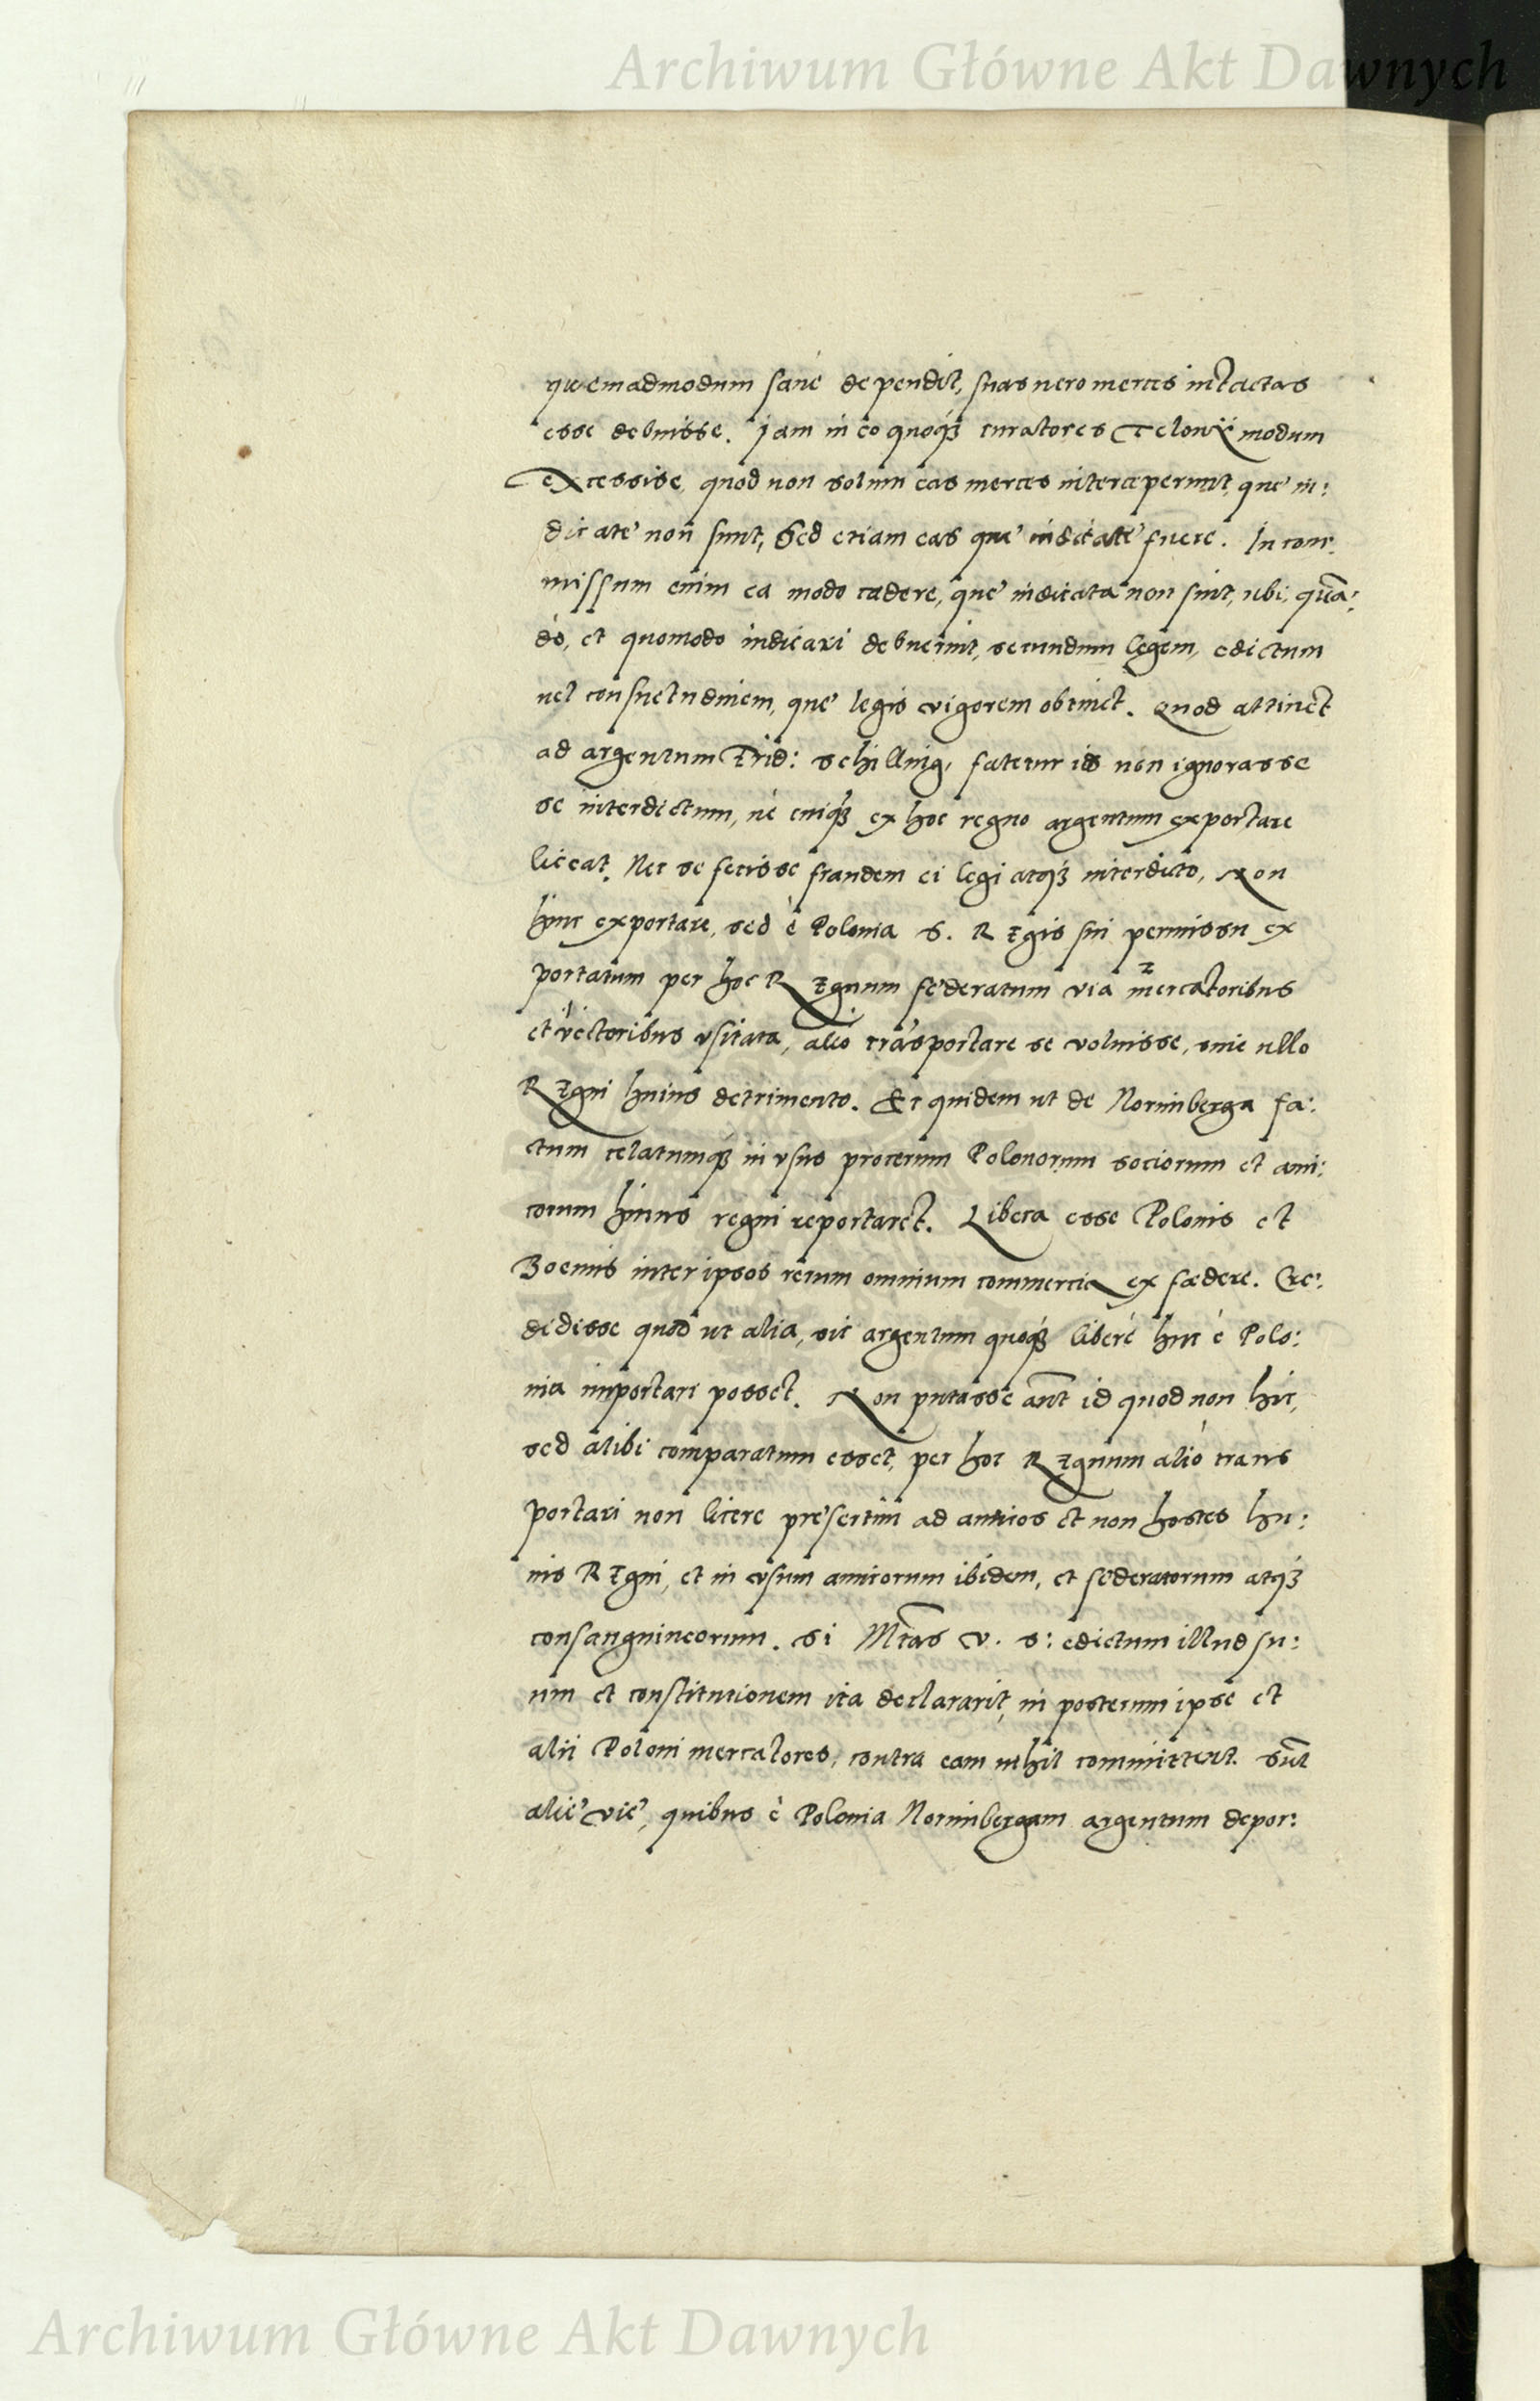 Archiwum Główne Akt Dawnych
quemadmodum sanè dependit, suas uero merces intactas
esse debuisse. Jam in eo quoq3 curatores Telonij modum
excessisse, quod non solum eas merces interceperunt, que in:
dicate non sunt, Sed etiam eas que indicate fuere. In com:
missum enim ea modo cadere, que indicata non sint, ubi, quã:
do, et quomodo indicari debuerint, secundum legem, edictum
uel consuetudinem, que legis vigorem obtinet. Quod attinet
ad argentum Frid: Schilling, fatetur is non ignorasse
se interdictum, nè cuiq3 ex hoc regno argentum exportare
liceat. Nec se fecisse fraudem ei legi atq3 interdicto, Non
hinc exportare, sed è Polonia S. Regis sui permissu ex
portatum per hoc Regnum federatum via mercatoribus
et vectoribus vsitata, aliò trãsportare se voluisse, sine ullo
Regni huius detrimento. Et quidem ut de Norimberga fa:
ctum celatumq3 in vsus procerum Polonorum sociorum et ami:
corum huius regni reportaret. Libera esse Polonis et
Boemis inter ipsos rerum omnium commercia ex fœdere. Cre:
didisse quod ut alia, sic argentum quoq3 liberè huc è Polo:
nia importari posset. Non putasse aũt id quod non hic,
sed alibi comparatum esset, per hoc Regnum aliò trans
portari non licere presertim ad amicos et non hostes hu:
ius Regni, et in vsum amicorum ibidem, et federatorum atq3
consanguineorum. Si Mtas V. S: edictum illud su:
um et constitutionem ita declararit, in posterum ipse et
alii Poloni mercatores, contra eam nihil committent. Sũt
alie vie, quibus è Polonia Norimbergam argentum depor:
Archiwum Główne Akt Dawnych